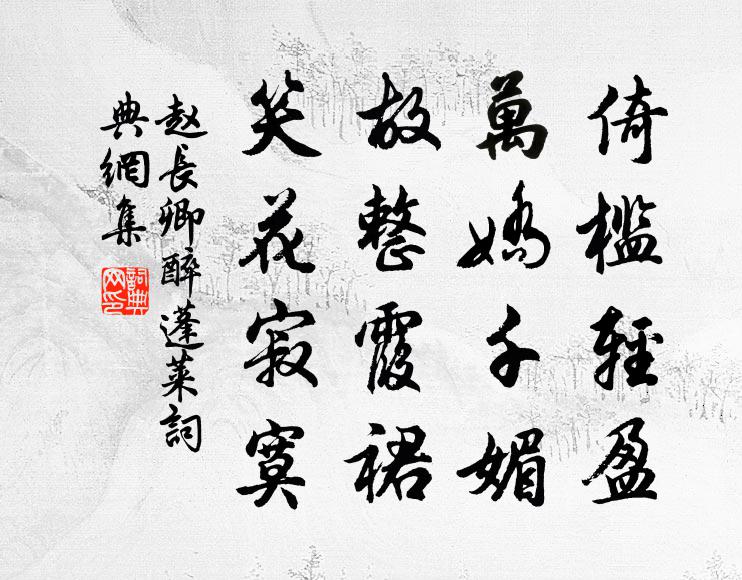 倚檻輕盈
萬嬌千媚
故整霞裙
笑花寂寞
赵長卿醉蓬莱詞
典網集
詞典網印